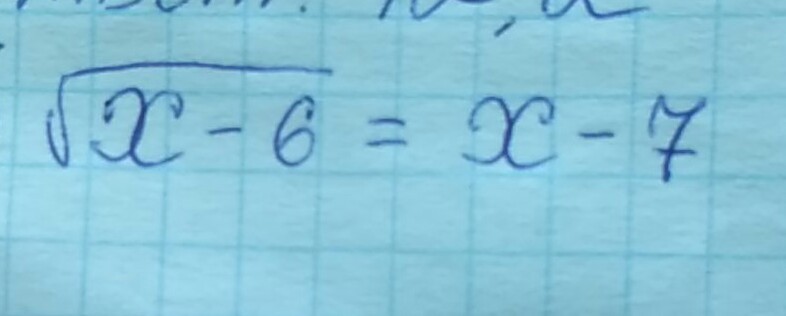 √(x - 6) = x - 7